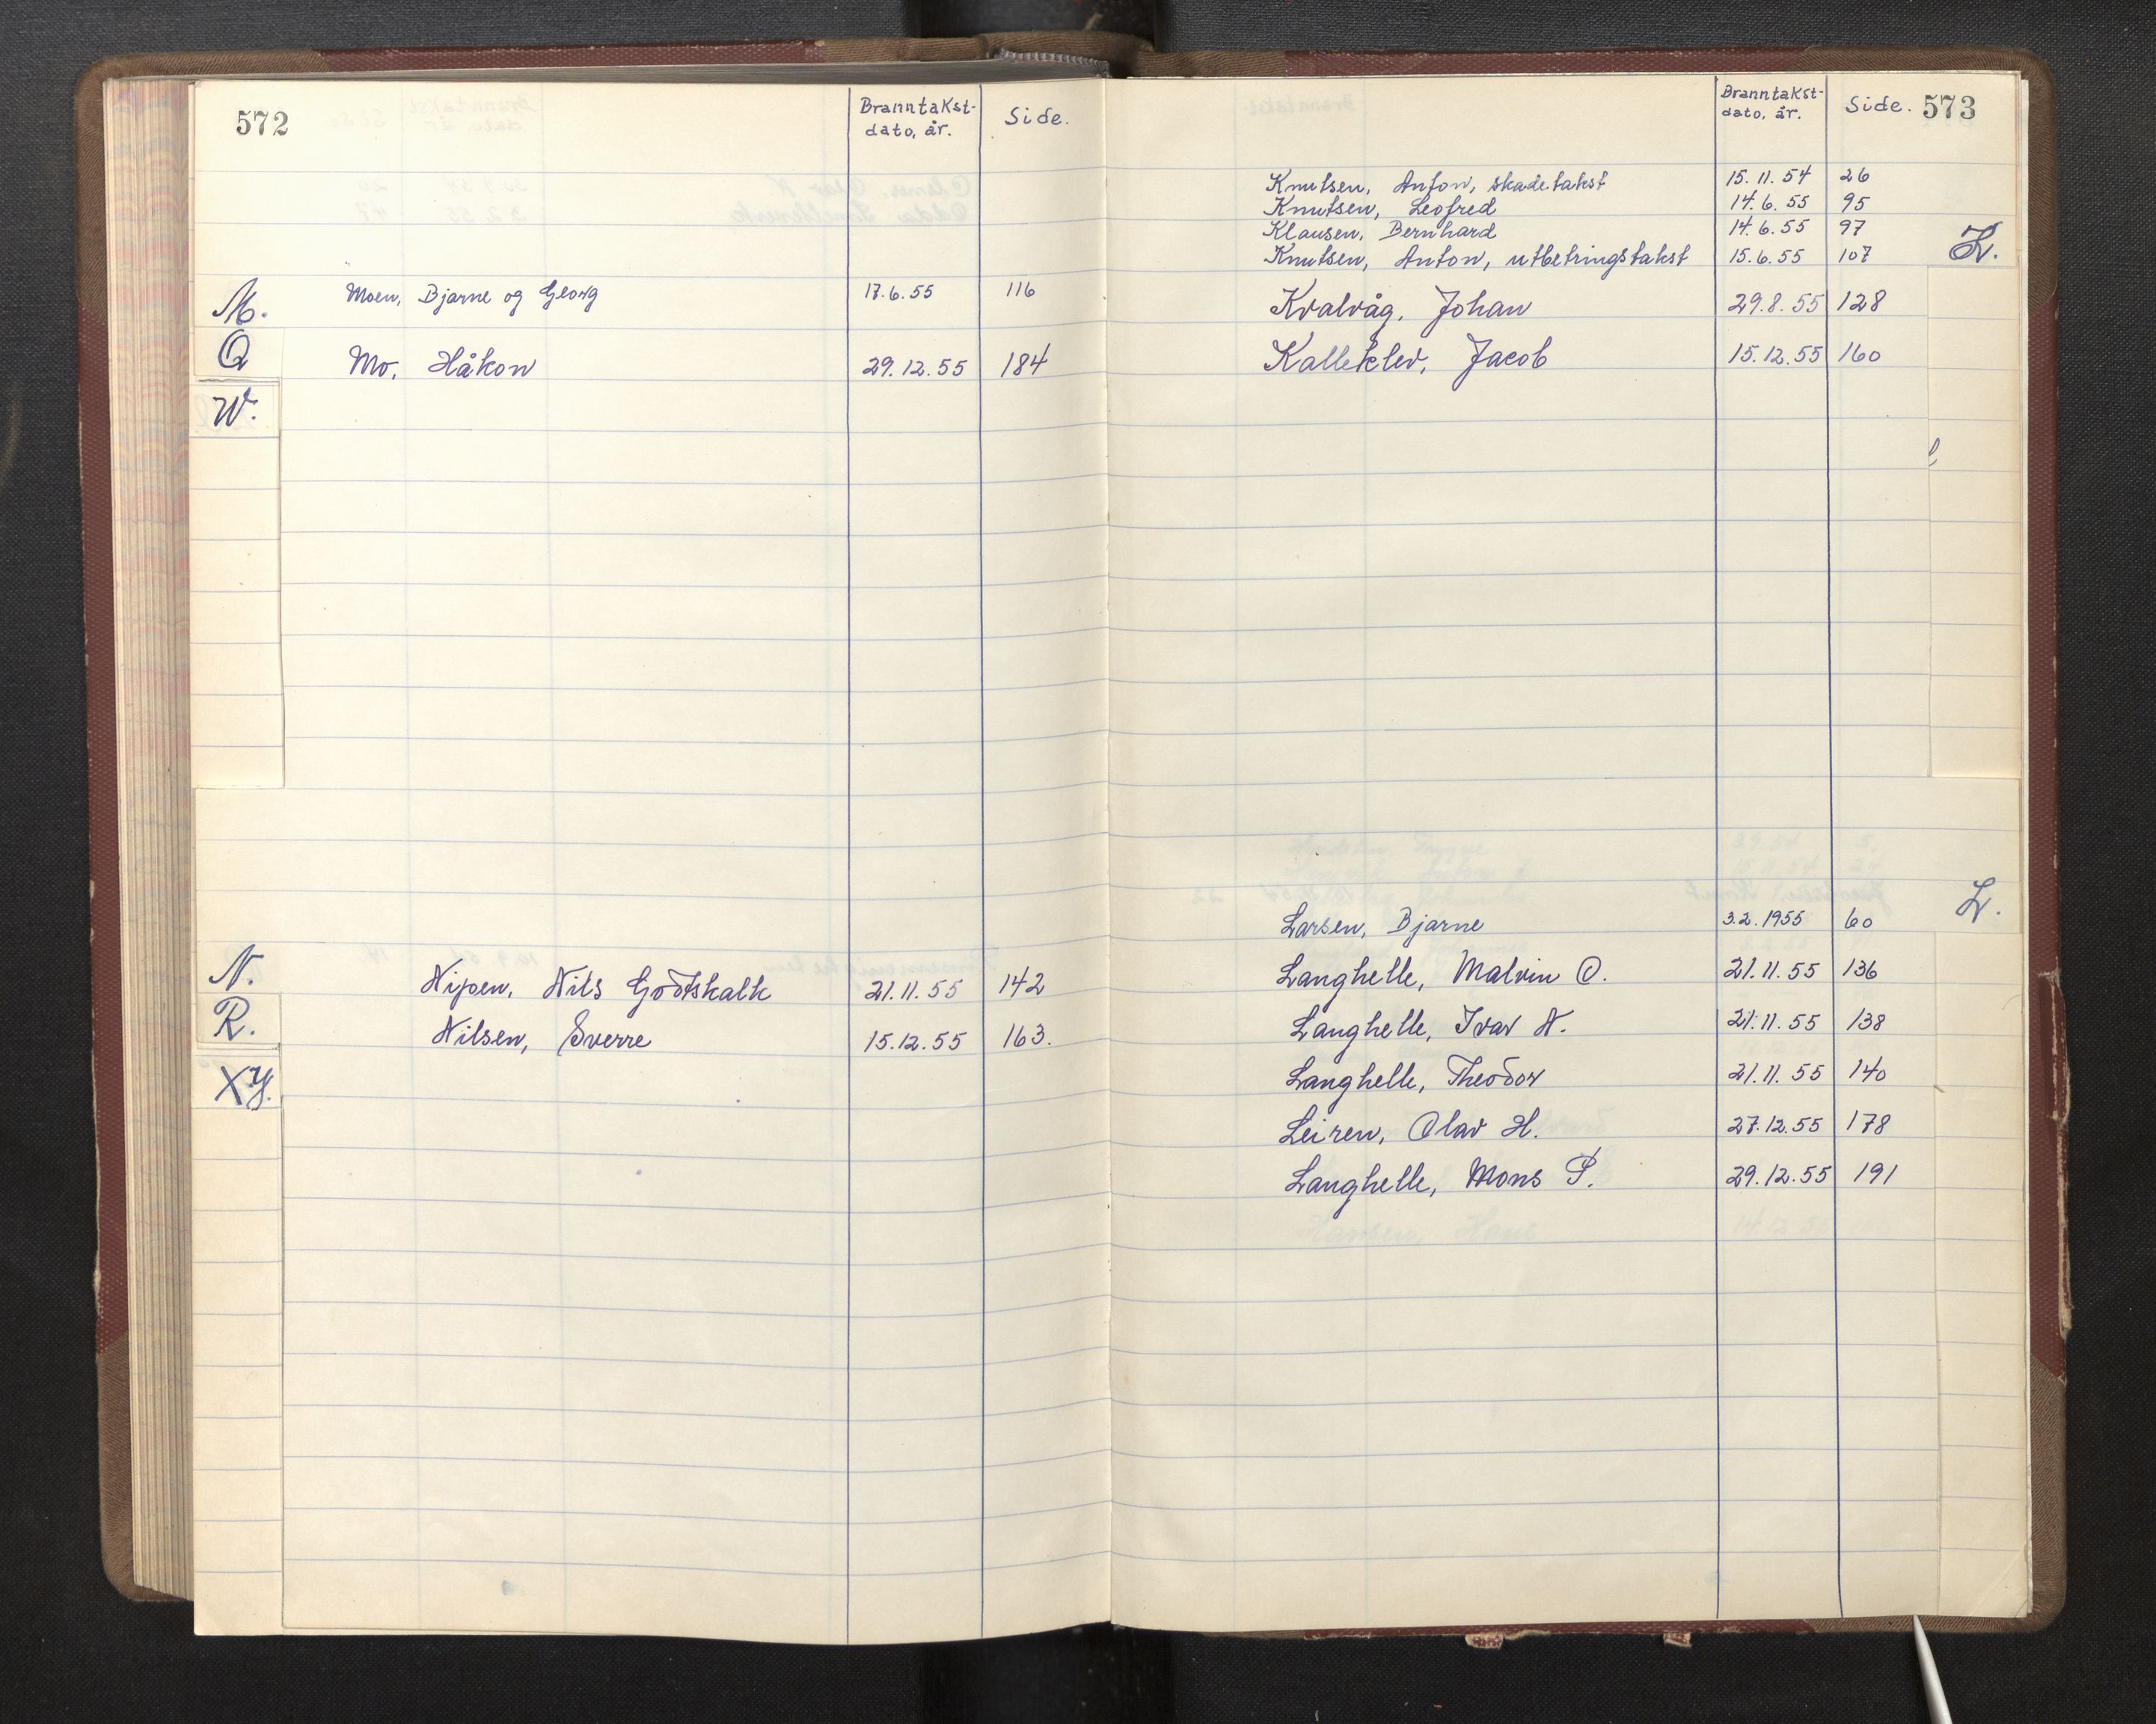 572
Branntakst-
dato, år.
Side.
M. Moen, Bjarne og Georg 17.6.55 116
Q Mo, Håkon 29.12.55 184
W.
N. Nipen, Nils Godtskalk 21.11.55 142
R. Nilsen, Sverre 15.12.55 163.
XY.
Branntakst-
dato, år.
Side. 573
Knutsen, Anton, skadetakst 15.11.54 26
Knutsen, Leofred 14.6.55 95
Klausen, Bernhard 14.6.55 97
Knutsen, Anton, utbetringstakst 15.6.55 107 K.
Kvalvåg, Johan 29.8.55 128
Kalleklev, Jacob 15.12.55 160
L.
Larsen, Bjarne 3.2.1955 60
Langhelle, Malvin O. 21.11.55 136
Langhelle, Ivar N. 21.11.55 138
Langhelle, Theodor 21.11.55 140
Leiren, Olav H. 27.12.55 178
Langhelle, Mons P. 29.12.55 191